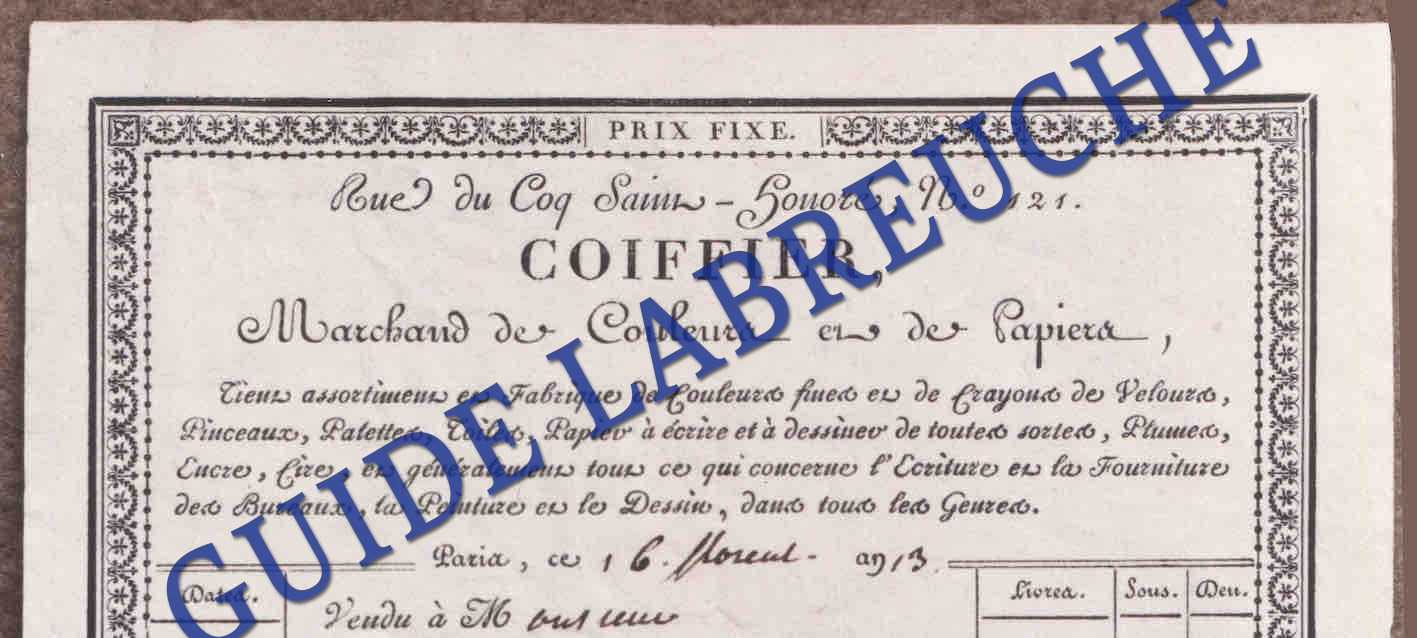 PRIX FIXE.
Rue du Coq Saint-Honoré, N.º 121.
COIFFIER,
Marchand de Couleurs et de Papiers,
Tient assortiment et Fabrique de Couleurs fines et de Crayons de Velours,
Pinceaux, Palettes, Toiles, Papier à écrire et à dessiner de toutes sortes, Plumes,
Encre, Cire, et généralement tout ce qui concerne l'Ecriture et la Fourniture
des Bureaux, la Peinture et le Dessin, dans tous les Genres.
Paris, ce 16. floreal - an 13
Dates. Livres. Sous. Den.
Vendu à Monsieur
GUIDE LABREUCHE